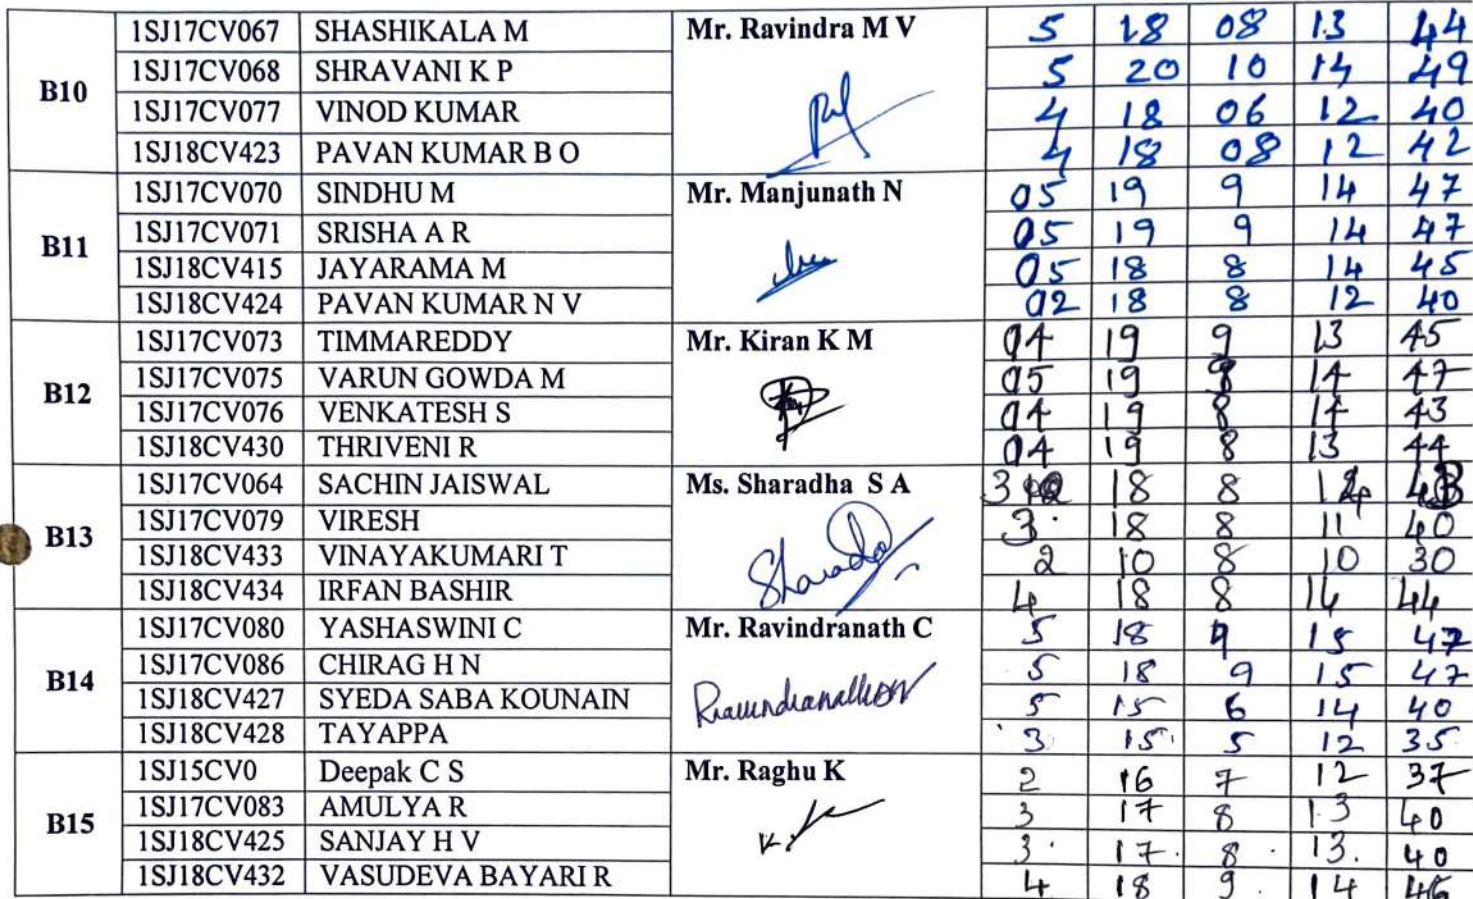 1SJ17CV067 SHASHIKALA M Mr. Ravindra M V 5 18 08 13 44
B10 1SJ17CV068 SHRAVANI K P 5 20 10 14 49
1SJ17CV077 VINOD KUMAR 4 18 06 12 40
1SJ18CV423 PAVAN KUMAR B O 4 18 08 12 42
1SJ17CV070 SINDHU M Mr. Manjunath N 05 19 9 14 47
B11 1SJ17CV071 SRISHA A R 05 19 9 14 47
1SJ18CV415 JAYARAMA M 05 18 8 14 45
1SJ18CV424 PAVAN KUMAR N V 02 18 8 12 40
1SJ17CV073 TIMMAREDDY Mr. Kiran K M 04 19 9 13 45
B12 1SJ17CV075 VARUN GOWDA M 05 19 14 47
1SJ17CV076 VENKATESH S 04 19 8 14 43
1SJ18CV430 THRIVENI R 04 19 8 13 44
1SJ17CV064 SACHIN JAISWAL Ms. Sharadha S A 3 18 8
B13 1SJ17CV079 VIRESH 3 18 8 11 40
1SJ18CV433 VINAYAKUMARI T Sharadha 2 10 8 10 30
1SJ18CV434 IRFAN BASHIR 4 18 8 14 44
1SJ17CV080 YASHASWINI C Mr. Ravindranath C 5 18 9 15 47
B14 1SJ17CV086 CHIRAG H N 5 18 9 15 47
1SJ18CV427 SYEDA SABA KOUNAIN 5 15 6 14 40
1SJ18CV428 TAYAPPA 3 15 5 12 35
1SJ15CV0 Deepak C S Mr. Raghu K 2 16 7 12 37
B15 1SJ17CV083 AMULYA R 3 17 8 13 40
1SJ18CV425 SANJAY H V 3 17 8 13 40
1SJ18CV432 VASUDEVA BAYARI R 4 18 9 14 46